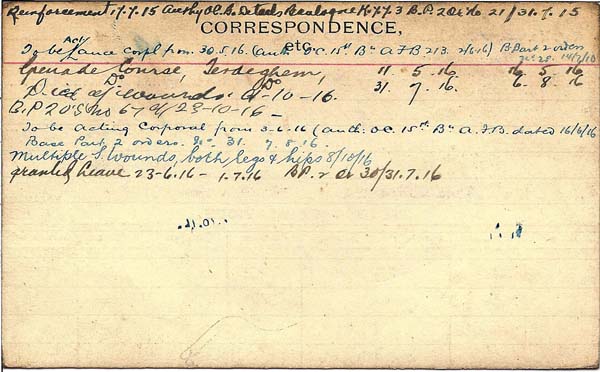 Reinforcement 17.7.15 Auth: O.C. Details Boulogne K.773 B.P.2 Or No 21/31.7.15
CORRESPONDENCE,
etc.
To be Actg Lance Corpl from 30.5.16. (Auth: O.C. 15th Bn A.F.B 213. 2/6/16) B. Part 2 orders
No 28.
Grenade Course, Terdeghem, 11 . 5 . 16. 16 . 5 . 16.
Do Do 31. 7 . 16. 6 . 8 . 16
Died of Wounds. 9-10-16.
B.P 20's No 67 d/ 23-10-16 -
To be Acting Corporal from 3-6-16 (Auth: O.C. 15th Bn A.F.B. dated 16/6/16
Base Part 2 orders. No 31. 7.8.16.
Multiple S. Wounds, both legs & hips 8/10/16
Granted Leave 23-6.16 - 1.7.16 B.P. 2 O 30/31.7.16